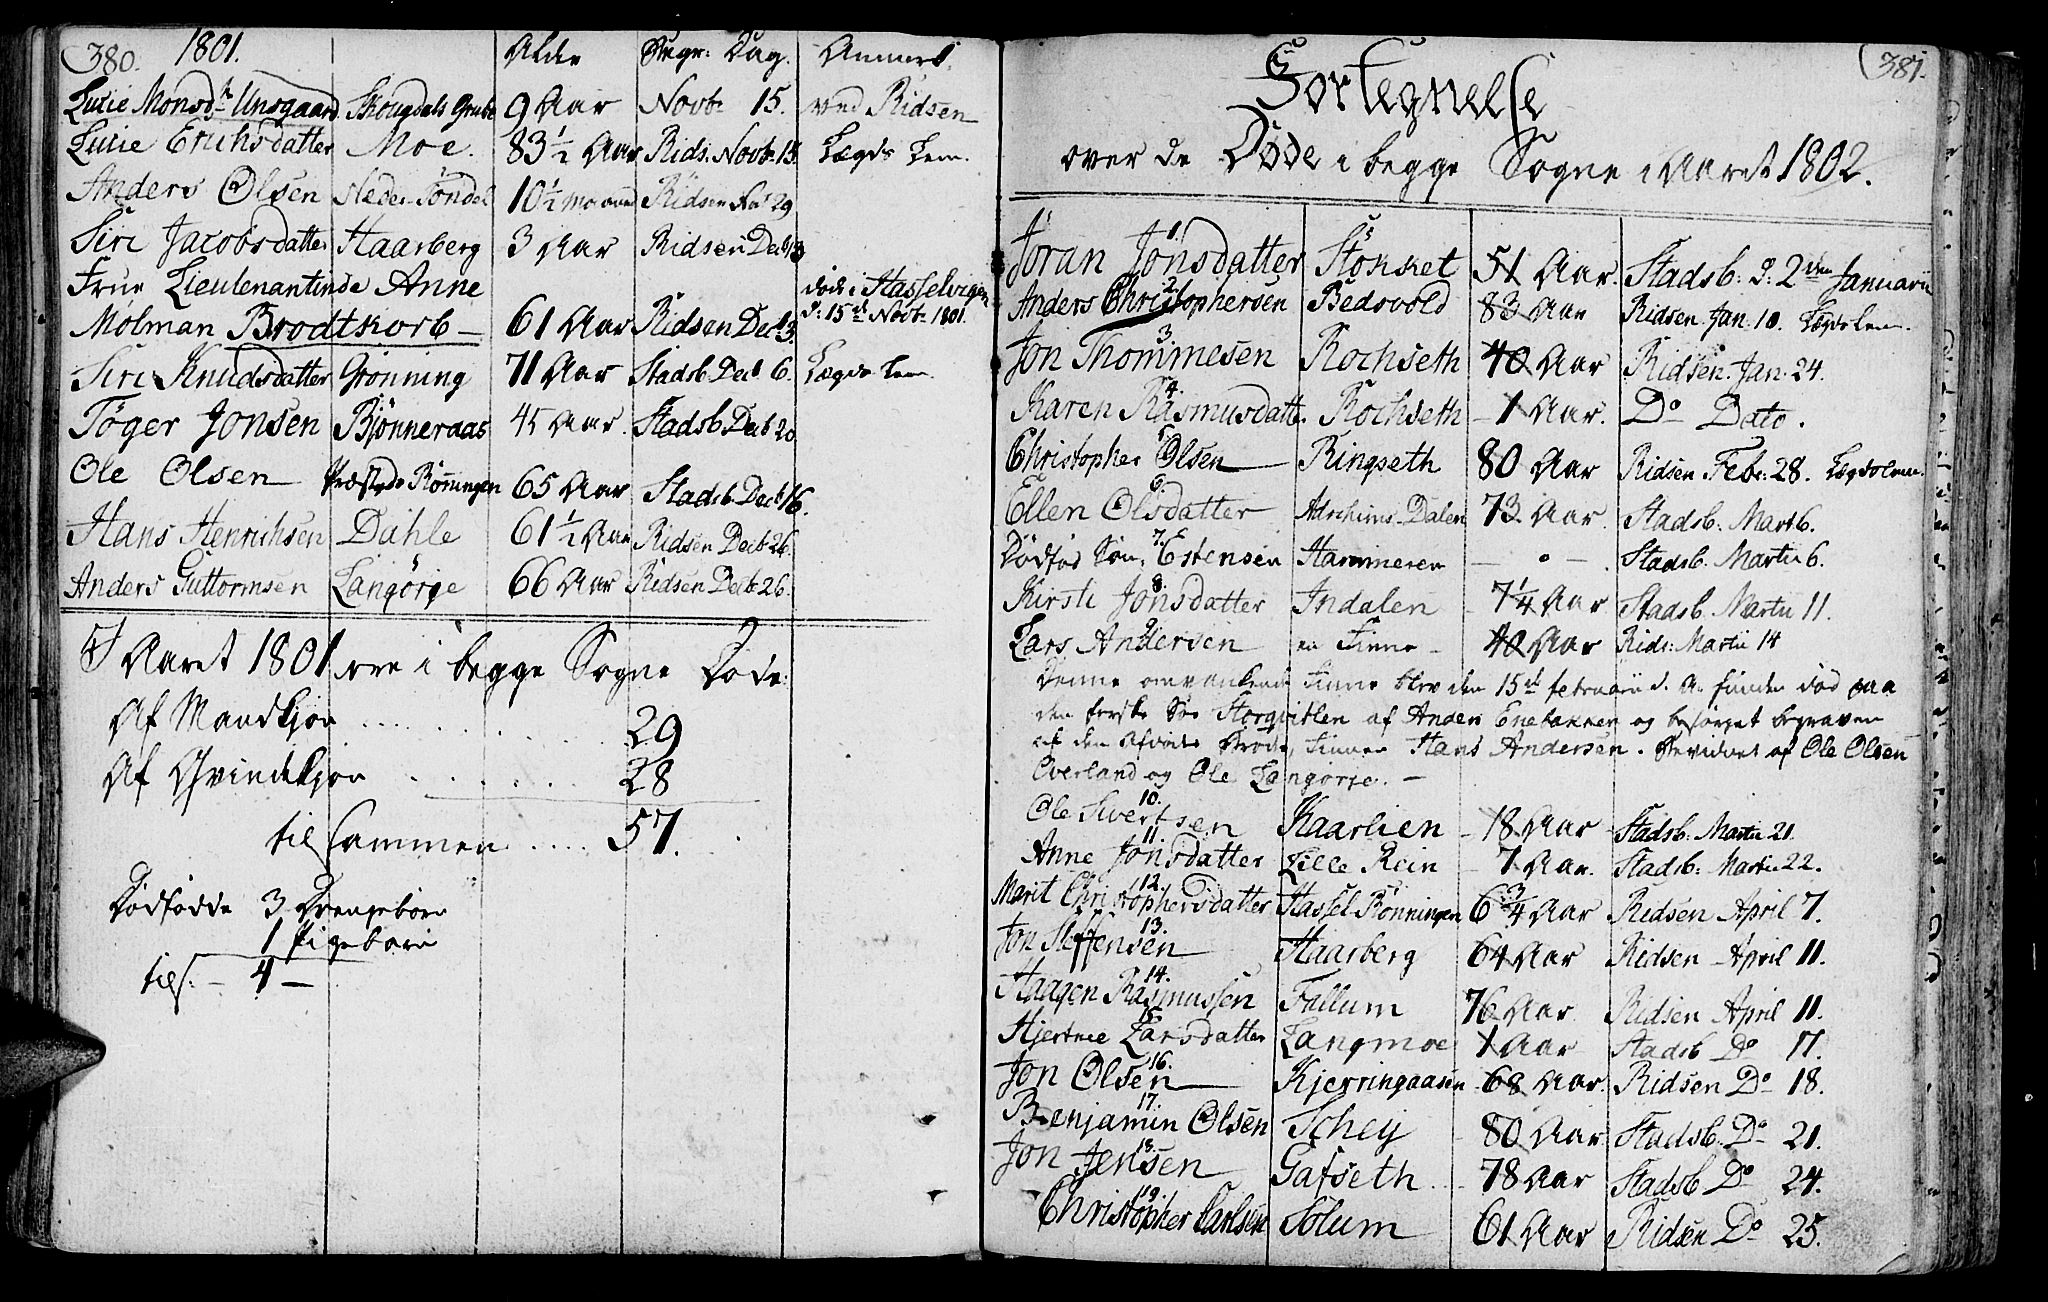 380. 1801. Alder Begr: Dag. Anmerk.
Lucie Monsdr Unsgaard Skougdals Grube 9 Aar Novbr 15. ved Ridsen
Lucie Erichsdatter Moe. 83 1/2 Aar Rids. Novbr 15. Lægds Lem.
Anders Olsen Neder-Tøndel 10 1/2 Maaned Ridsen Nov 29
Siri Jacobsdatter Haarberg 3 Aar Ridsen Decb 13
Frue Lieutenantinde Anne død i Hasselvigen
Mølman Brodtkorb — 61 Aar Ridsen Decb 13. d: 15de Novbr 1801.
Siri Knudsdatter Grønning 71 Aar Stadsb Decb 6. Lægds Lem.
Tøger Jonsen Bjønneraas 45 Aar. Stadsb Decb 20
Ole Olsen Præsteds Rønningen 65 Aar Stadsb Decb 16.
Hans Henrichsen Dahle 61 1/2 Aar Ridsen Decb 26
Anders Guttormsen Langørje 66 Aar Ridsen Decbr 26.
I Aaret 1801 ere i begge Sogne Døde:
Af Mandkjøn .... 29
Af Qvindekjøn .... 28
tilsammen .... 57.
Dødfødde 3 Drengebørn
1 Pigebarn
tils. — 4 —
381.
Fortegnelse
over de Døde i begge Sogne i Aaret 1802.
1 Jøran Jonsdatter Stokket 51 Aar. Stadsb: d. 2den Januarii
2 Anders Christophersen Bedsvold 83 Aar Ridsen Jan. 10. Lægdslem.
3 Jon Thommesen Rochseth 40 Aar Ridsen. Jan. 24.
4. Karen Rasmusdatter Rochseth 1 Aar. Do Dato.
5 Christopher Olsen Ringseth 80 Aar Ridsen Febr: 28. Lægdslem.
6. Ellen Olsdatter Adrihims-Dalen 73 Aar. Stadsb: Mart 6.
7. Dødfød Søn, Estensen Hammeren — " — Stadsb. Martii 6.
8. Kirsti Jonsdatter Indalen 7 1/4 Aar Stadsb. Martii 11.
9 Lars Andersen en Finne 40 Aar Rids: Martii 14
Denne omvankende Finne blev den 15de Februarii d. A. funden død paa
den ferske Søe Storqvitlen af Anders Enebakken og besørget begraven
af den Afdødes Broder, Finnen Hans Andersen. Bevidnet af Ole Olsen
Everland og Ole Langørje. —
10. Ole Sivertsen Kaarlien 18 Aar Stadsb: Martii 21.
11. Anne Jonsdatter Lille Rein 7 Aar. Stadsb: Martii 22.
12. Marit Christophersdatter Hassel-Rønningen 6 3/4 Aar Ridsen April 7.
13. Jon Steffensen Haarberg 64 Aar Ridsen April 11.
14. Haagen Rasmussen Fallum 76 Aar Ridsen April 11.
15 Hjertnee Larsdatter Langmoe 1 Aar Stadsb Do 17.
16. Jon Olsen Kjerringaasen 68 Aar. Ridsen Do 18.
17. Benjamin Olsen Schey 80 Aar Stadsb. Do 21.
18. Jon Jensen Gafseth 78 Aar Stadsb Do 24.
19. Christopher Carlsen Solum 61 Aar Ridsen Do 25.